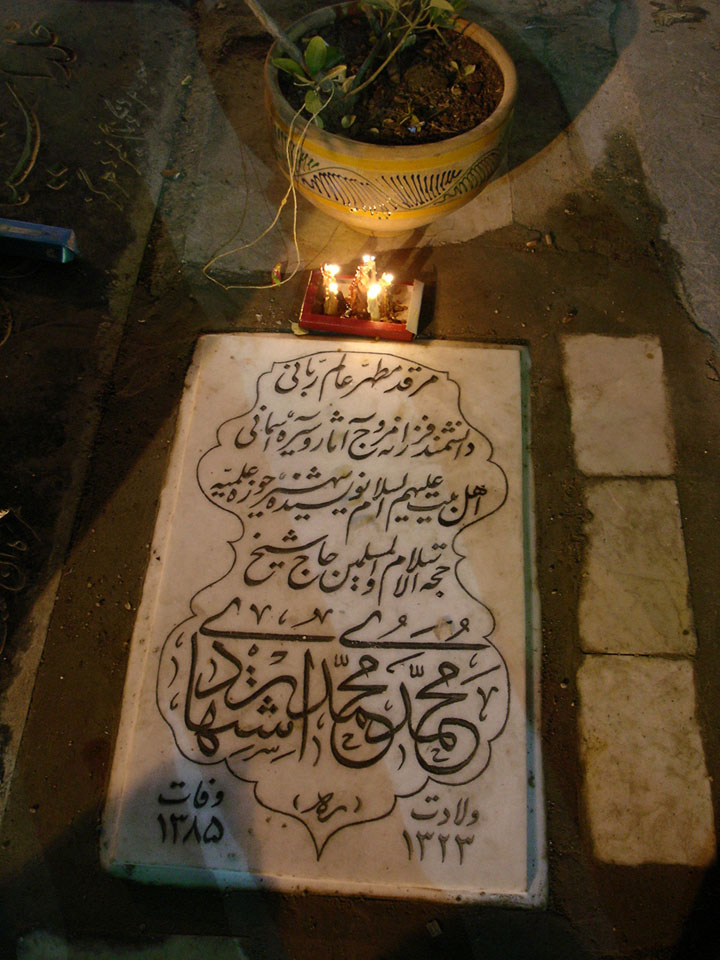 مرقد مطهّر عالم ربّانی
دانشمند فرزانه مروج آثار و سیره آسمانی
اهل بیت علیهم السلام نویسنده شهیر حوزه علمیّه
حجه الاسلام والمسلمین حاج شیخ
محمّد محمّدی اشتهاردی
(ره)
ولادت
۱۳۲۳
وفات
۱۳۸۵